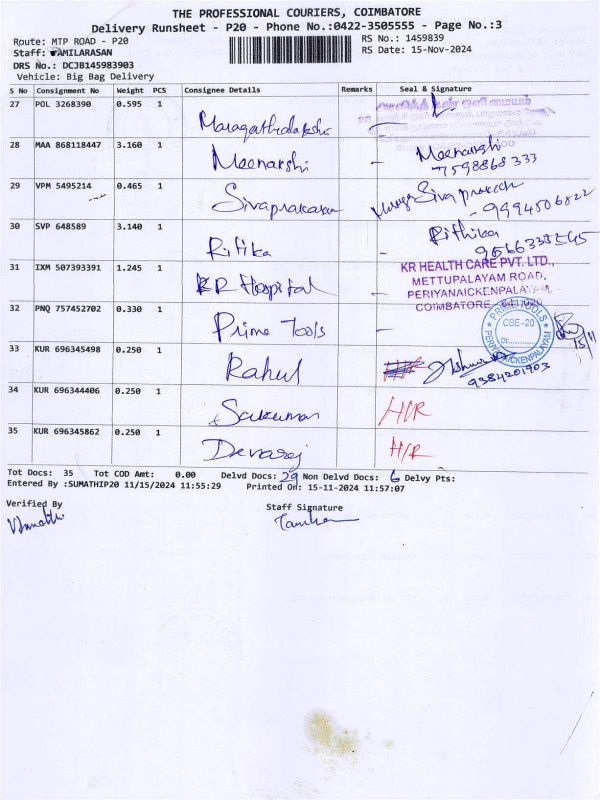 THE PROFESSIONAL COURIERS, COIMBATORE
Delivery Runsheet - P20 - Phone No.:0422-3505555 - Page No.:3
Route: MTP ROAD - P20 RS No.: 1459839
Staff: TAMILARASAN RS Date: 15-Nov-2024
DRS No.: DCJB145983903
Vehicle: Big Bag Delivery
S No Consignment No Weight PCS Consignee Details Remarks Seal & Signature
27 POL 3268390 0.595 1 Maragathalakshi
28 MAA 868118447 3.160 1 Meenakshi - Meenakshi
7598868333
29 VPM 5495214 0.465 1 Sivaprakasam - Sivaprakash
- 9994506822
30 SVP 648589 3.140 1 Ritika - Rithika
9566335545
31 IXM 507393391 1.245 1 KR Hospital - KR HEALTH CARE PVT. LTD.,
METTUPALAYAM ROAD,
PERIYANAICKENPALAYAM,
COIMBATORE - 641020
32 PNQ 757452702 0.330 1 Prime Tools - PRIME TOOLS
CBE-20
PERIYANAICKENPALAYAM
15/11
33 KUR 696345498 0.250 1 Rahul
9384201903
34 KUR 696344406 0.250 1 Sakuman H/R
35 KUR 696345862 0.250 1 Devaraj H/R
Tot Docs: 35 Tot COD Amt: 0.00 Delvd Docs: 29 Non Delvd Docs: 6 Delvy Pts:
Entered By :SUMATHIP20 11/15/2024 11:55:29 Printed On: 15-11-2024 11:57:07
Verified By Staff Signature